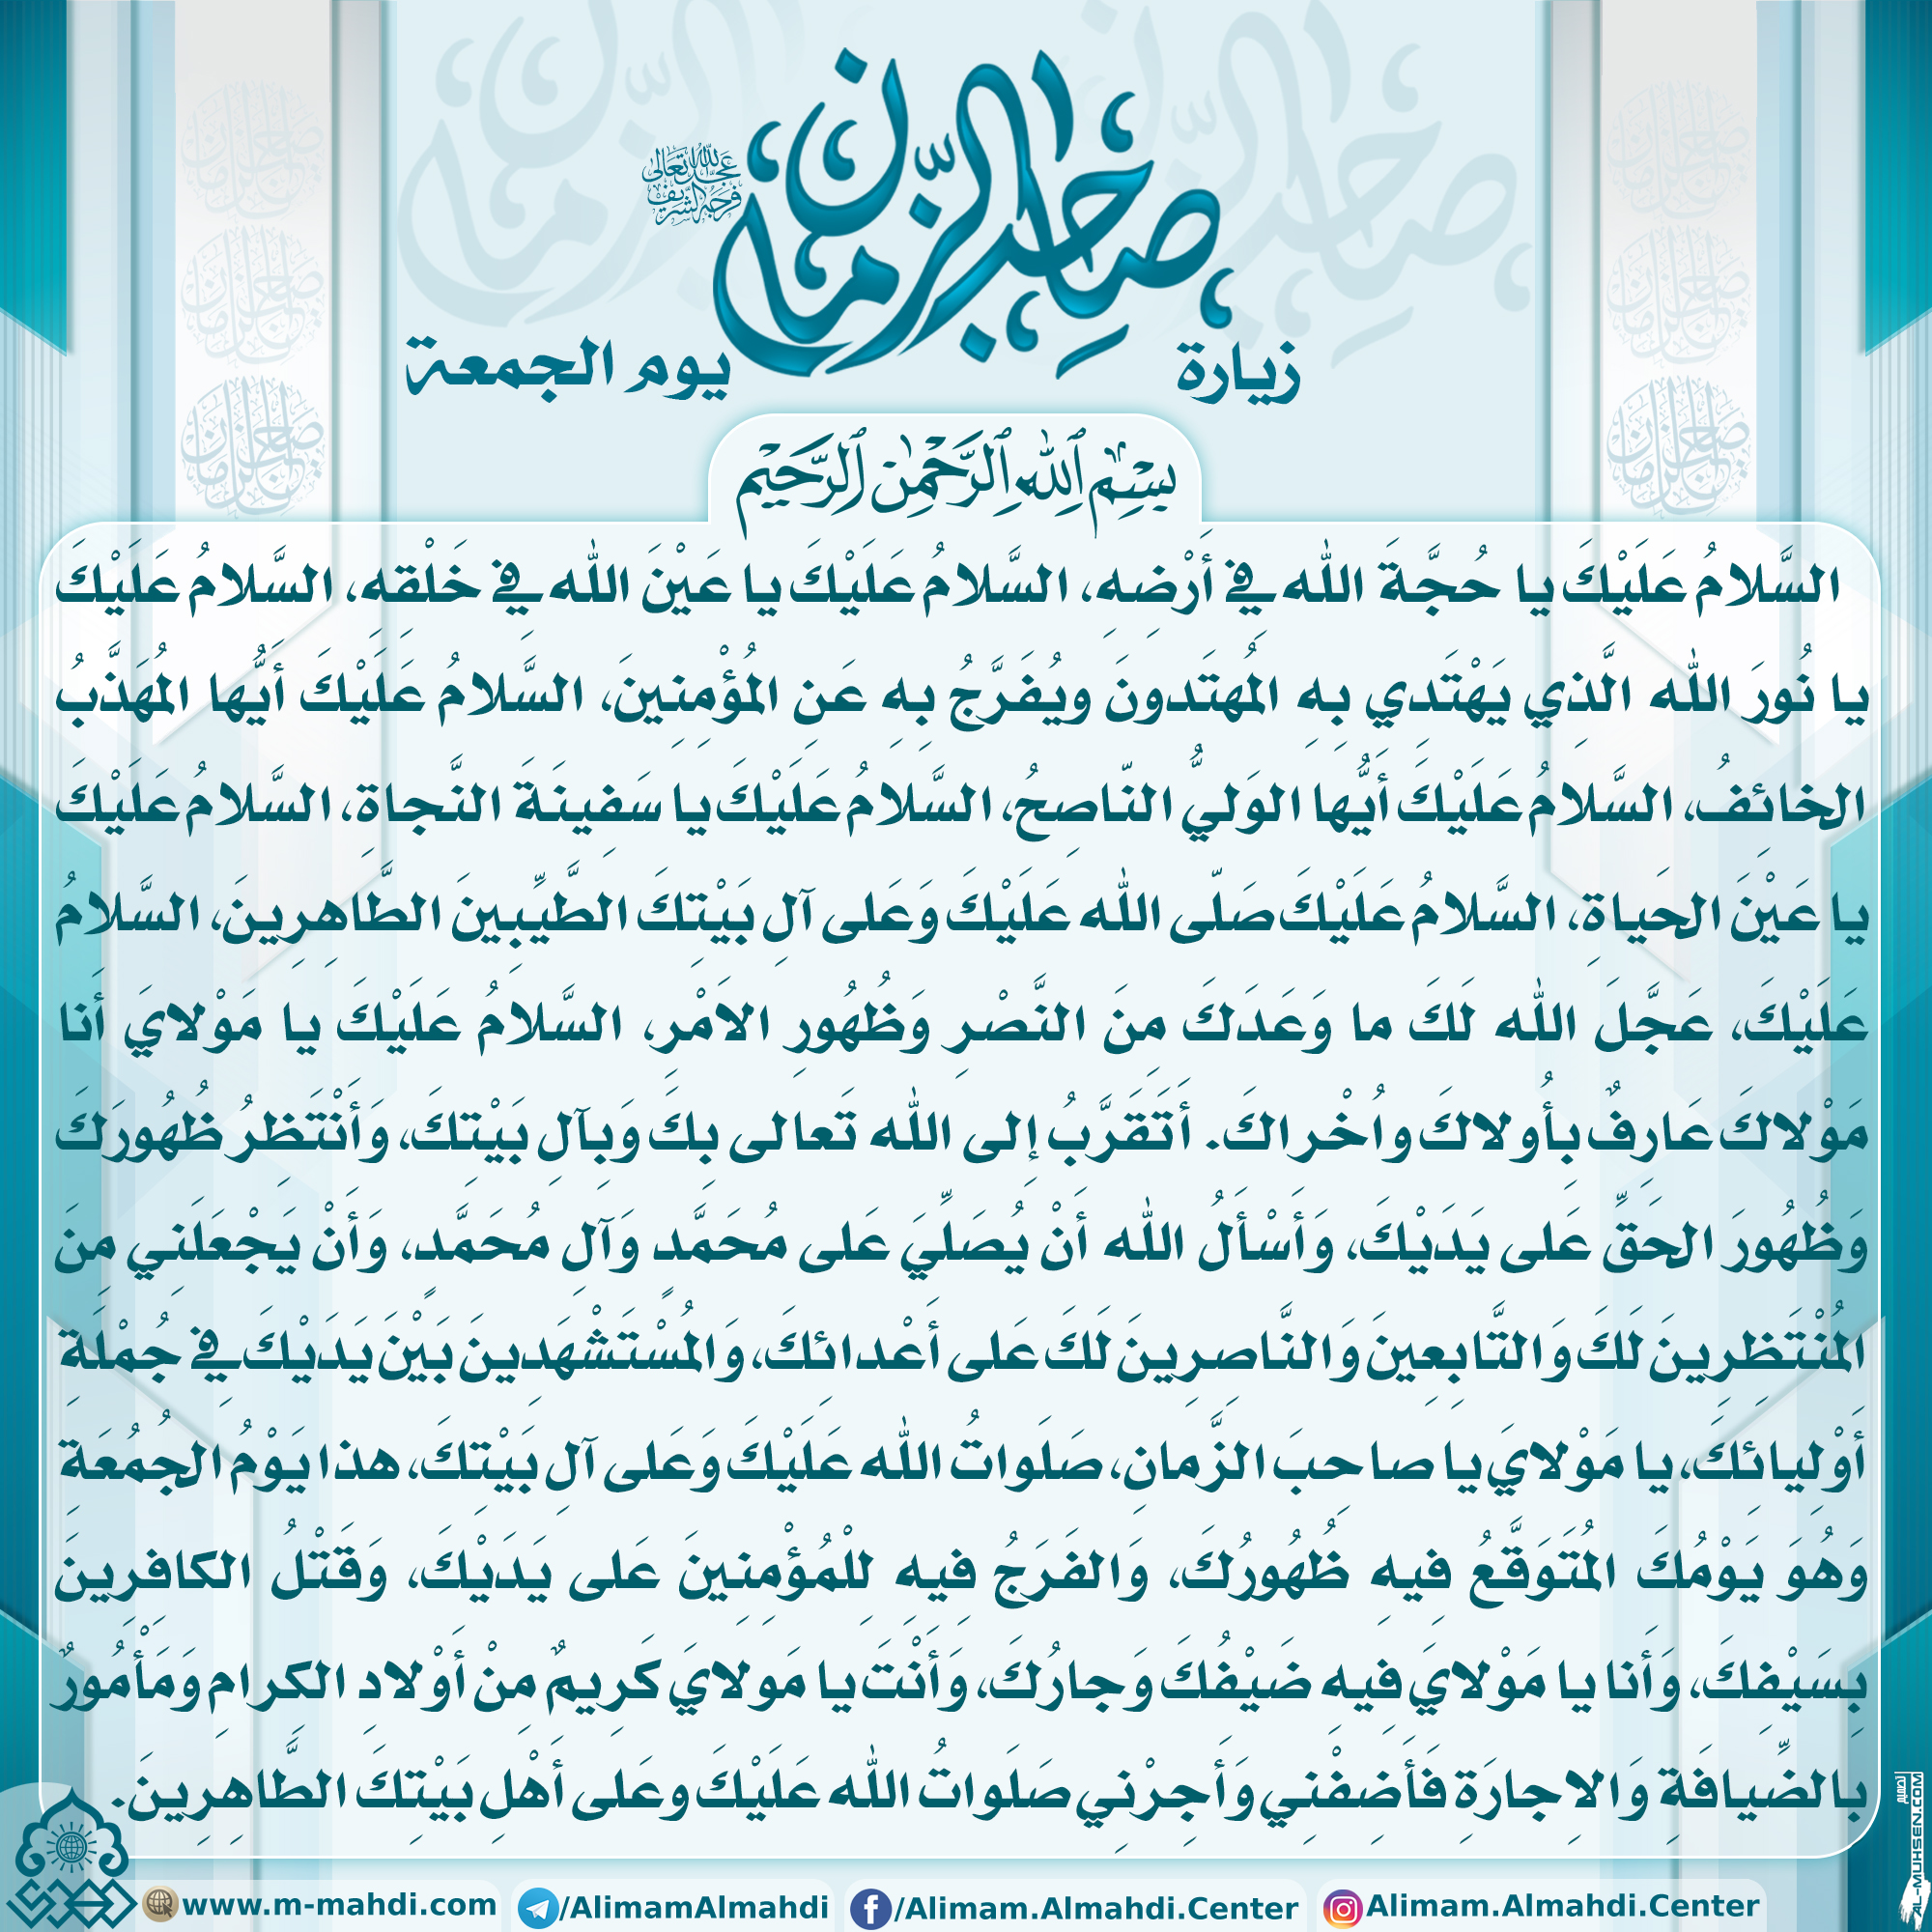 صاحب الزمان
عجل الله تعالى فرجه الشريف
زيارة
يوم الجمعة
بِسْمِ ٱللهِ ٱلرَّحْمٰنِ ٱلرَّحِيمِ
السَّلامُ عَلَيْكَ يا حُجَّةَ اللهِ فِي أَرْضِهِ، السَّلامُ عَلَيْكَ يا عَيْنَ اللهِ فِي خَلْقِهِ، السَّلامُ عَلَيْكَ
يا نُورَ اللهِ الَّذِي يَهْتَدِي بِهِ المُهتَدونَ ويُفَرَّجُ بِهِ عَنِ المُؤْمِنِينَ، السَّلامُ عَلَيْكَ أَيُّها المُهَذَّبُ
الخائفُ، السَّلامُ عَلَيْكَ أَيُّها الوَليُّ النّاصِحُ، السَّلامُ عَلَيْكَ يا سَفِينَةَ النَّجاةِ، السَّلامُ عَلَيْكَ
يا عَيْنَ الحَياةِ، السَّلامُ عَلَيْكَ صَلّى اللهُ عَلَيْكَ وَعَلى آلِ بَيْتِكَ الطَّيِّبِينَ الطَّاهِرِينَ، السَّلامُ
عَلَيْكَ، عَجَّلَ اللهُ لَكَ ما وَعَدَكَ مِنَ النَّصْرِ وَظُهُورِ الاَمْرِ، السَّلامُ عَلَيْكَ يا مَوْلايَ أَنا
مَوْلاكَ عَارِفٌ بِأُولاكَ واُخْراكَ. أَتَقَرَّبُ إِلى اللهِ تَعالى بِكَ وَبِآلِ بَيْتِكَ، وَأَنْتَظِرُ ظُهُورَكَ
وَظُهُورَ الحَقِّ عَلى يَدَيْكَ، وَأَسْأَلُ اللهَ أَنْ يُصَلِّيَ عَلى مُحَمَّدٍ وَآلِ مُحَمَّدٍ، وَأَنْ يَجْعَلَنِي مِنَ
المُنْتَظِرِينَ لَكَ وَالتَّابِعِينَ وَالنَّاصِرِينَ لَكَ عَلى أَعْدائِكَ، وَالمُسْتَشْهَدِينَ بَيْنَ يَدَيْكَ فِي جُمْلَةِ
أَوْلِيائِكَ، يا مَوْلايَ يا صاحِبَ الزَّمانِ، صَلَواتُ اللهِ عَلَيْكَ وَعَلى آلِ بَيْتِكَ، هذا يَوْمُ الجُمُعَةِ
وَهُوَ يَوْمُكَ المُتَوَقَّعُ فِيهِ ظُهُورُكَ، وَالفَرَجُ فِيهِ لِلْمُؤْمِنِينَ عَلى يَدَيْكَ، وَقَتْلُ الكافِرِينَ
بِسَيْفِكَ، وَأَنا يا مَوْلايَ فِيهِ ضَيْفُكَ وَجارُكَ، وَأَنْتَ يا مَولايَ كَرِيمٌ مِنْ أَوْلادِ الكرامِ وَمَأْمُورٌ
بِالضِّيافَةِ وَالاِجارَةِ فَأَضِفْنِي وَأَجِرْنِي صَلَواتُ اللهِ عَلَيْكَ وعَلى أَهْلِ بَيْتِكَ الطَّاهِرِينَ.
www.m-mahdi.com
/AlimamAlmahdi
/Alimam.Almahdi.Center
Alimam.Almahdi.Center
تصميم
AL-MUHSEN.COM